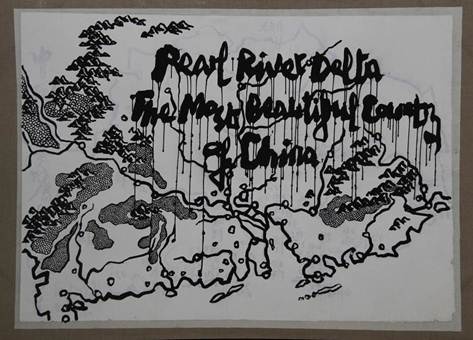 Pearl River Delta
The Most Beautiful
of China